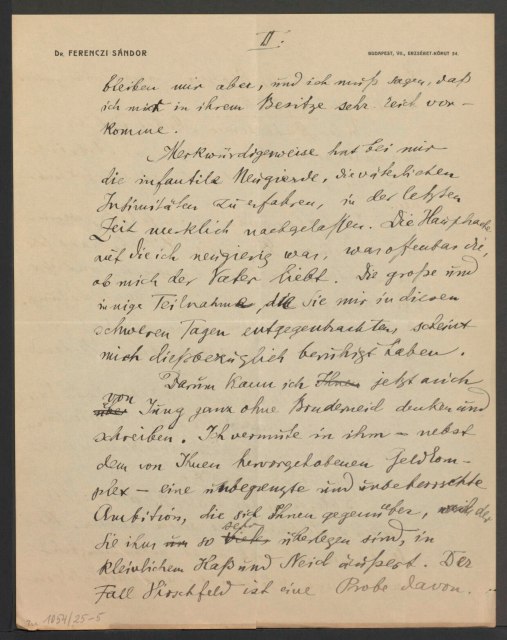 II.
Dr. FERENCZI SÁNDOR
BUDAPEST, VII., ERZSÉBET-KÖRUT 54.
bleiben mir aber, und ich muß sagen, daß
ich mir in ihrem Besitze sehr reich vor-
komme.
Merkwürdigerweise hat bei mir
die infantile Neugierde, die väterlichen
Intimitäten zu erfahren, in der letzten
Zeit merklich nachgelassen. Die Hauptsache
auf die ich neugierig war, war offenbar die,
ob mich der Vater liebt. Die große und
innige Teilnahme, die Sie mir in diesen
schweren Tagen entgegenbrachten, scheint
mich diesbezüglich beruhigt haben.
Darum kann ich Ihnen jetzt auch
von
über Jung ganz ohne Bruderneid denken und
schreiben. Ich vermute in ihm – nebst
dem von Ihnen hervorgehobenen Geldkom-
plex – eine unbegrenzte und unbeherrschte
Ambition, die sich Ihnen gegenüber, der
Sie ihm um so sehr viel überlegen sind, in
kleinlichem Haß und Neid äußert. Der
Fall Hirschfeld ist eine Probe davon.
1054/25-5